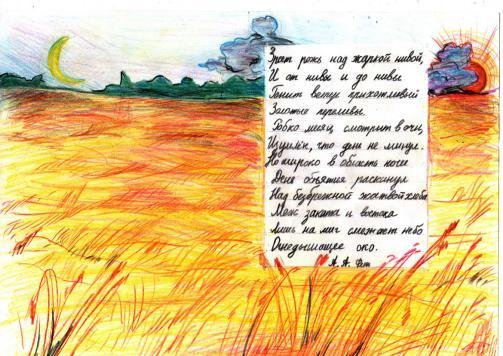 Зреет рожь над жаркой нивой,
И от нивы и до нивы
Гонит ветер прихотливый
Золотые переливы.
Робко месяц смотрит в очи,
Изумлён, что день не минул.
Но широко в область ночи
День объятия раскинул
Над безбрежной жатвой хлеба
Меж заката и востока
Лишь на миг смежает небо
Огнедышащее око.
А. А. Фет